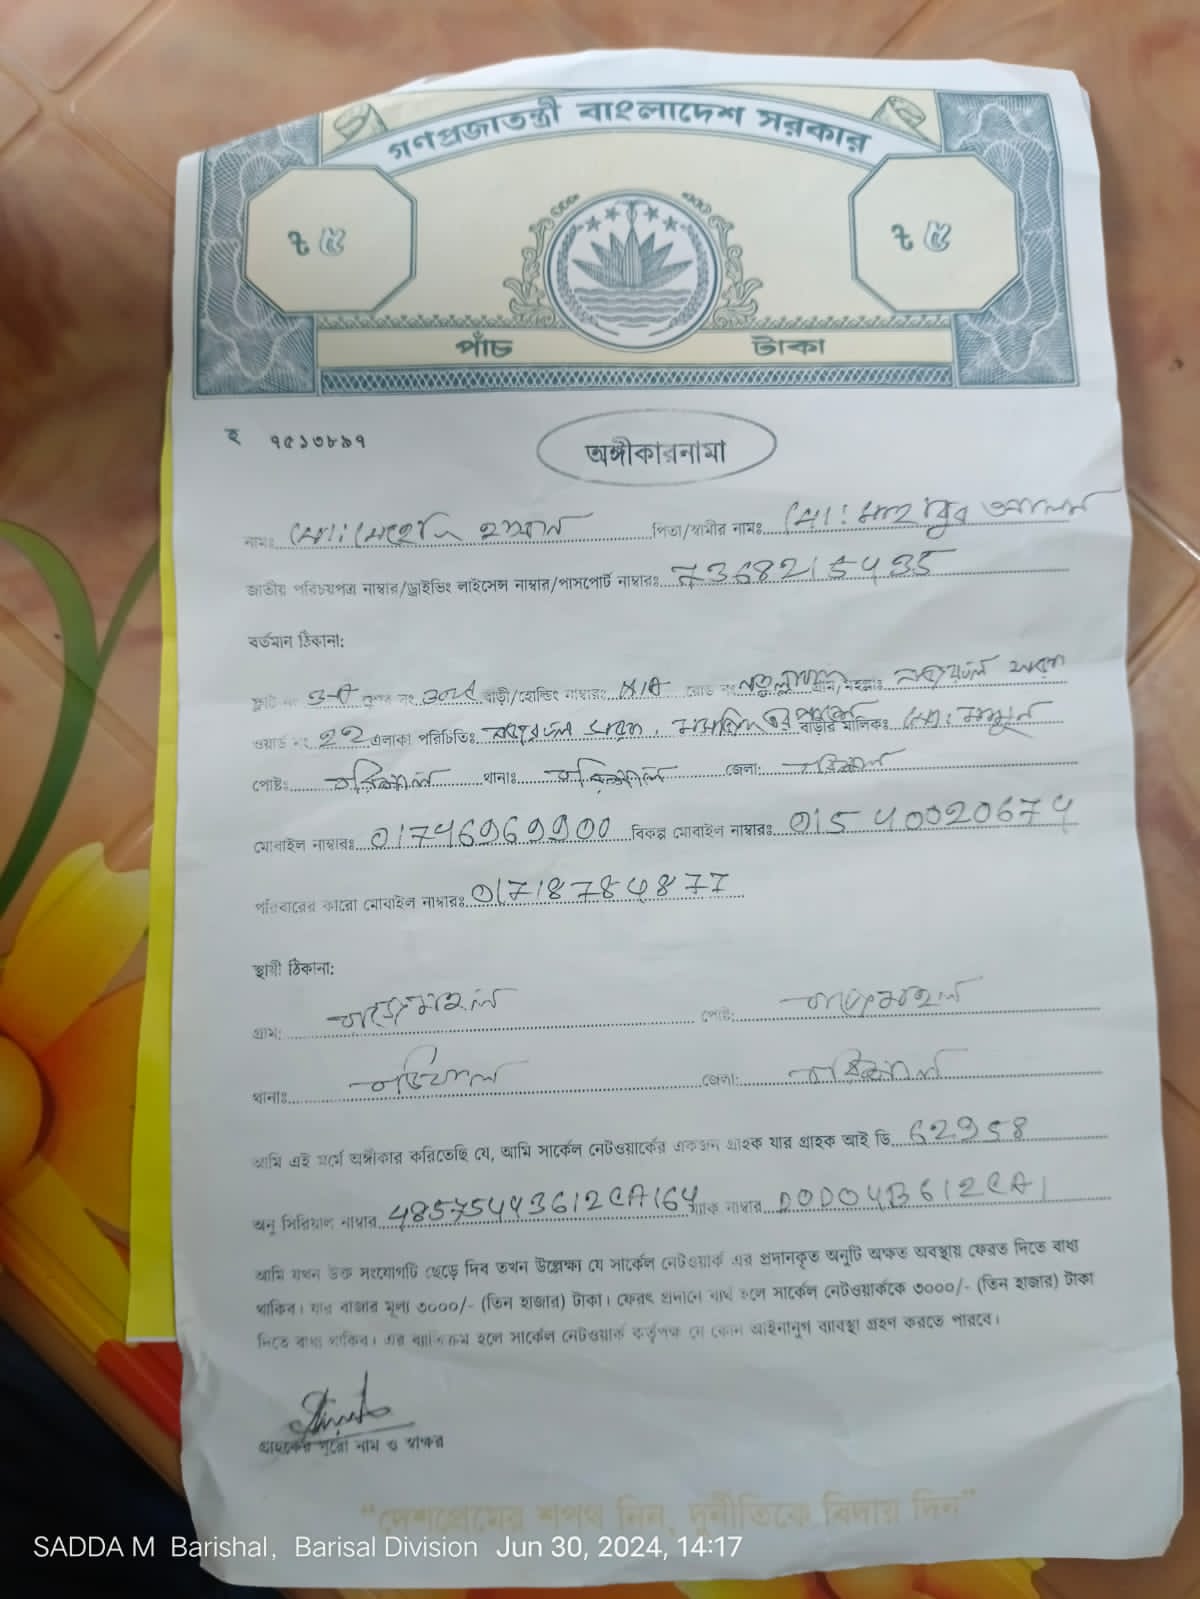 গণপ্রজাতন্ত্রী বাংলাদেশ সরকার
৳ ৫ ৳ ৫
পাঁচ টাকা
হ ৭৫১৩৮৯৭
অঙ্গীকারনামা
নামঃ মোঃ মেহেদি হাসান পিতা/স্বামীর নামঃ মোঃ মাহাবুব আলম
জাতীয় পরিচয়পত্র নাম্বার/ড্রাইভিং লাইসেন্স নাম্বার/পাসপোর্ট নাম্বারঃ 7368215435
বর্তমান ঠিকানা:
ফ্লাট নং 3-A রুম নং বাড়ী/হোল্ডিং নাম্বারঃ N/A রোড নং গ্রাম/মহল্লাঃ
ওয়ার্ড নং 22 এলাকা পরিচিতিঃ বাড়ীর মালিকঃ মোঃ মামুন
পোষ্টঃ বরিশাল থানাঃ বরিশাল জেলা: বরিশাল
মোবাইল নাম্বারঃ 01746969900 বিকল্প মোবাইল নাম্বারঃ 01540020674
পরিবারের কারো মোবাইল নাম্বারঃ 01718784877
স্থায়ী ঠিকানা:
গ্রাম: পোষ্ট:
থানাঃ জেলা: বরিশাল
আমি এই মর্মে অঙ্গীকার করিতেছি যে, আমি সার্কেল নেটওয়ার্কের একজন গ্রাহক যার গ্রাহক আই ডি 62958
অনু সিরিয়াল নাম্বার 48575443612CA164 ম্যাক নাম্বার D0D04B612CA1
আমি যখন উক্ত সংযোগটি ছেড়ে দিব তখন উল্লেক্ষা যে সার্কেল নেটওয়ার্ক এর প্রদানকৃত অনুটি অক্ষত অবস্থায় ফেরত দিতে বাধ্য
থাকিব। যার বাজার মূল্য ৩০০০/- (তিন হাজার) টাকা। ফেরৎ প্রদানে ব্যর্থ হলে সার্কেল নেটওয়ার্ককে ৩০০০/- (তিন হাজার) টাকা
দিতে বাধ্য থাকিব। এর ব্যতিক্রম হলে সার্কেল নেটওয়ার্ক কর্তৃপক্ষ যে কোন আইনানুগ ব্যাবস্থা গ্রহণ করতে পারবে।
গ্রাহকের পুরো নাম ও স্বাক্ষর
“দেশপ্রেমের শপথ নিন, দুর্নীতিকে বিদায় দিন”
SADDA M Barishal, Barisal Division Jun 30, 2024, 14:17